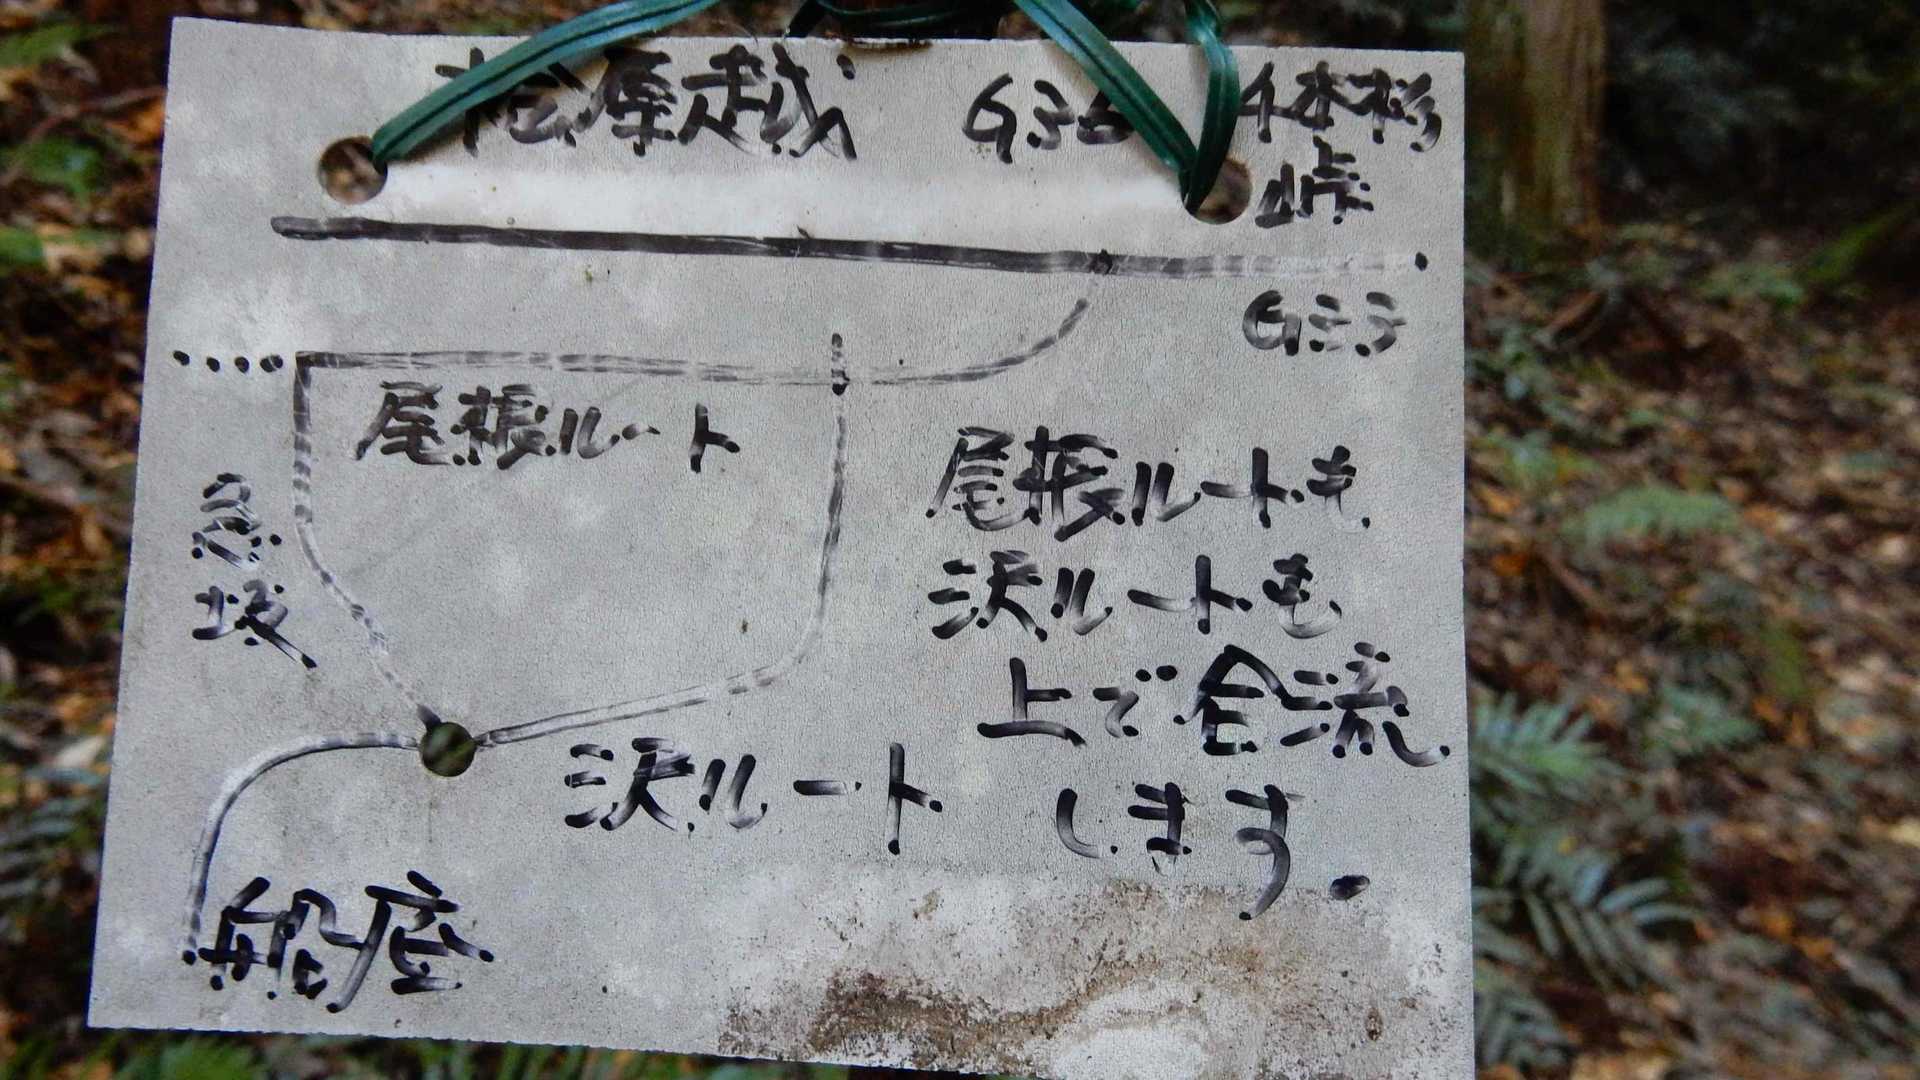 松原越 G36 4本杉
峠
G33
尾根ルート
急
坂
尾根ルートも
沢ルートも
上で合流
します.
沢ルート
船底